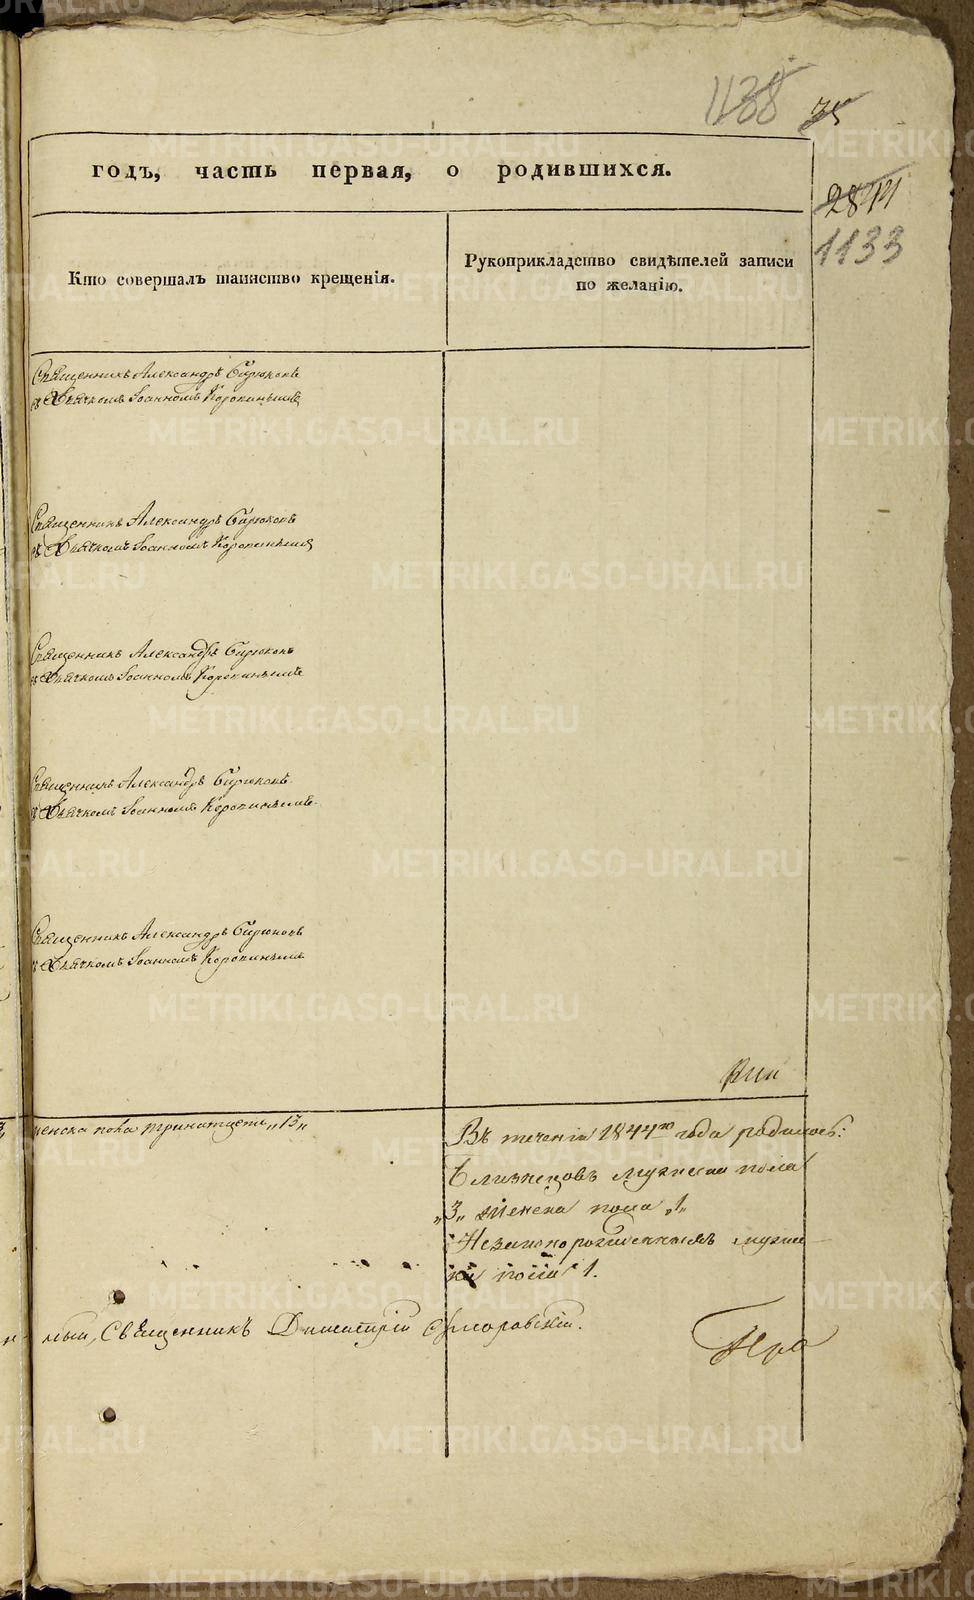 1138 35
годъ, часть первая, о родившихся.
2814
1133
Кто совершалъ таинство крещенія.
Рукоприкладство свидѣтелей записи
по желанію.
Священникъ Александръ Бирюковъ
съ Дьячкомъ Іоанномъ Коропинымъ
Священникъ Александръ Бирюковъ
съ Дьячкомъ Іоанномъ Коропинымъ
Священникъ Александръ Бирюковъ
съ Дьячкомъ Іоанномъ Коропинымъ
Священникъ Александръ Бирюковъ
съ Дьячкомъ Іоанномъ Коропинымъ
Священникъ Александръ Бирюковъ
съ Дьячкомъ Іоанномъ Коропинымъ
женска пола тринатцеть „13„
Въ теченіи 1844го года родилось:
близнецовъ мужеска пола
„3„ женска пола „1„
Незаконорожденныхъ муже-
ска пола 1.
Священникъ Димитрій
METRIKI.GASO-URAL.RU